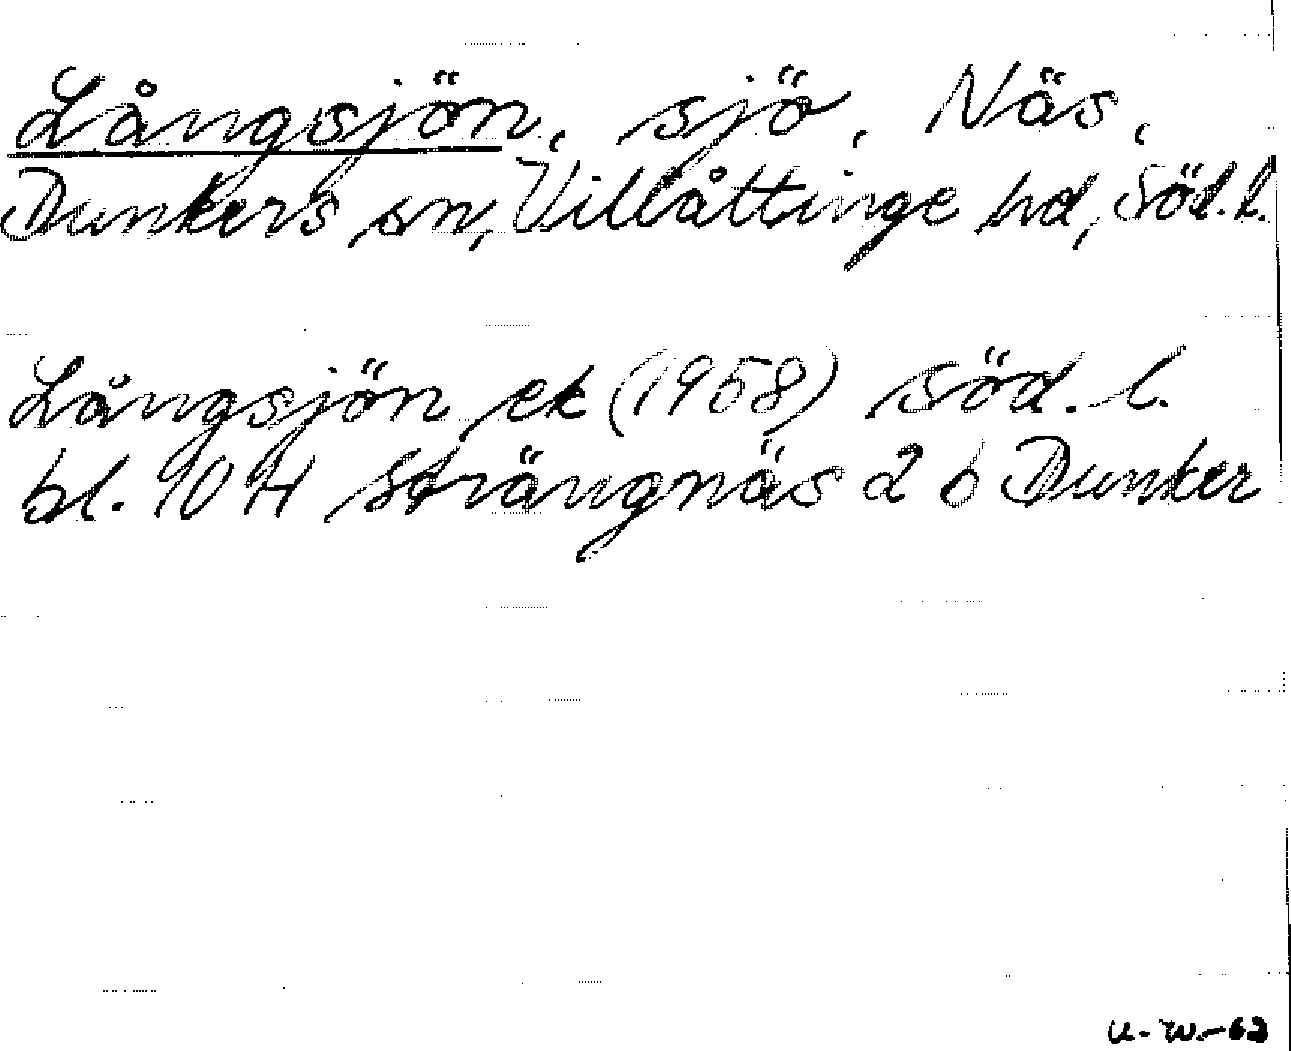 Långsjön, sjö, Näs,
Dunkers sn, Villåttinge hd, Söd. l.
Långsjön ek (1958) Söd. l.
bl. 10 H Strängnäs 2 b Dunker
U-W-62